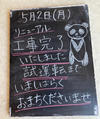 5月2日(月)
リニューアル
工事完了
いたしました
試運転まで
いましばらく
おまちくださいませ